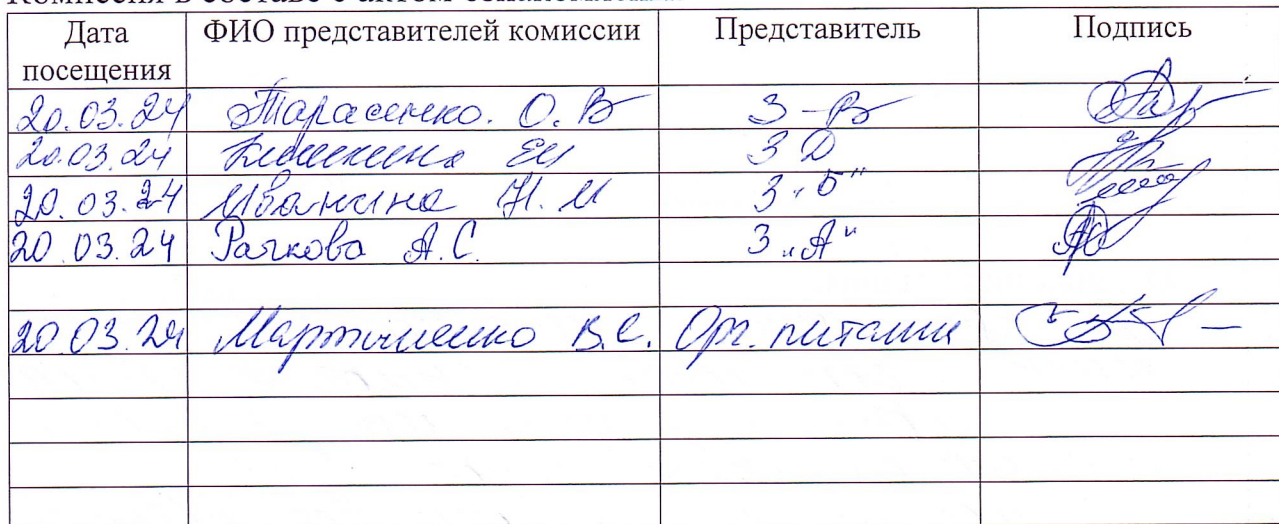 Комиссия в составе с актом
Дата посещения ФИО представителей комиссии Представитель Подпись
20.03.24 Тарасенко. О. В 3-В
20.03.24 ЕИ 3 Д
20.03.24 Иванина Н. И 3 „Б"
20.03.24 Рачкова А.С. 3 „А"
20.03.24 Мартыненко В.С. Орг. питания